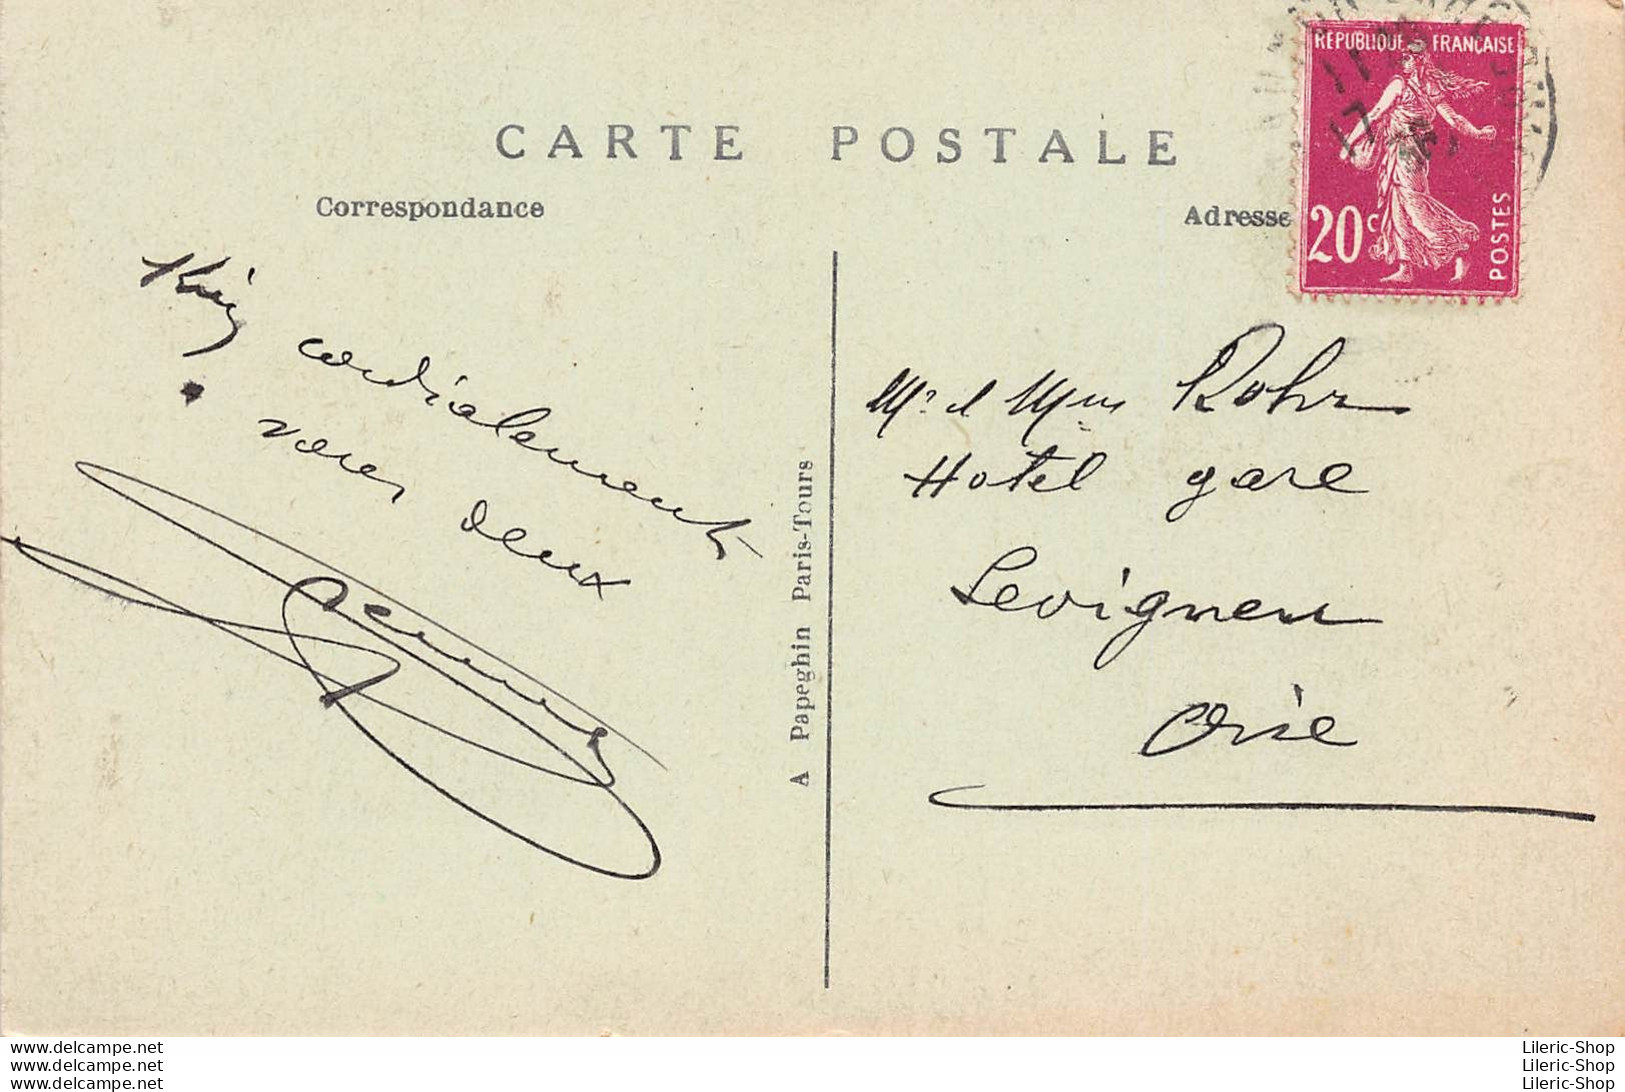 CARTE POSTALE
Correspondance
Adresse
RÉPUBLIQUE FRANÇAISE
20c
POSTES
11
17
cordialement
deux
A Papeghin Paris-Tours
Mr et Mme Rohr
Hotel gare
Levignen
Oise
www.delcampe.net
www.delcampe.net
www.delcampe.net
Lileric-Shop
Lileric-Shop
Lileric-Shop